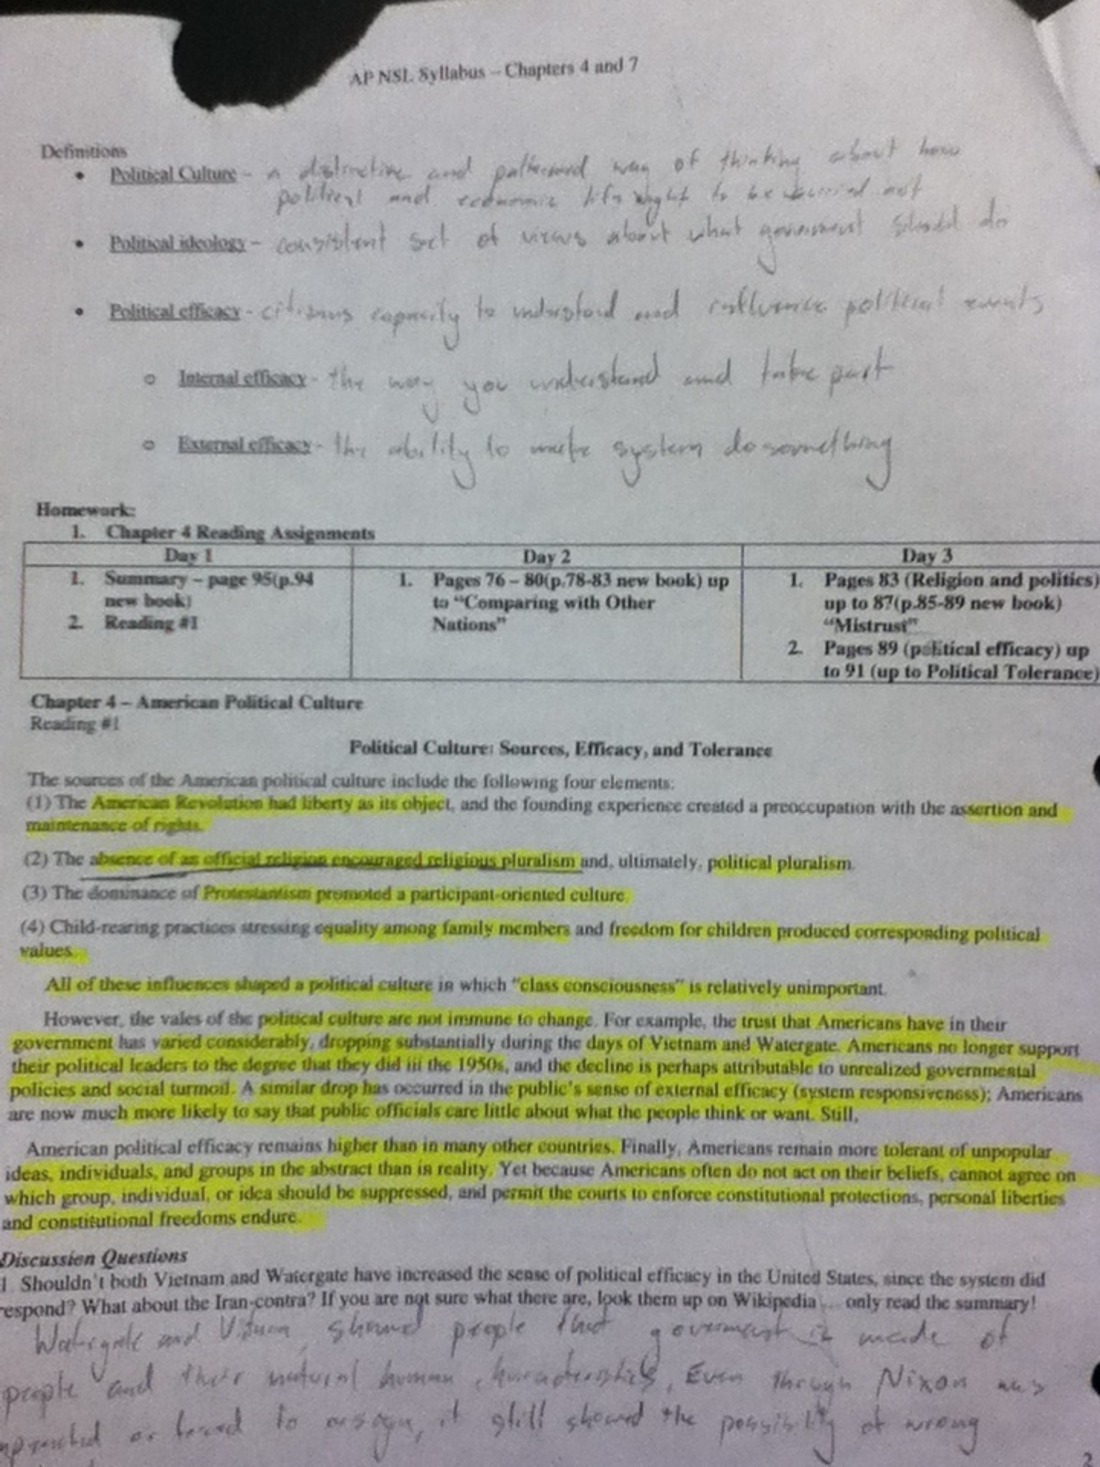 AP NSL Syllabus – Chapters 4 and 7
Definitions
• Political Culture - A distinctive and patterned way of thinking about how
political and economic life ought to be carried out
• Political ideology – consistent set of views about what government should do
• Political efficacy - citizens capacity to understand and influence political events
o Internal efficacy - the way you understand and take part
o External efficacy - the ability to make system do something
Homework:
1. Chapter 4 Reading Assignments
Day 1 Day 2 Day 3
1. Summary – page 95(p.94 1. Pages 76 – 80(p.78-83 new book) up 1. Pages 83 (Religion and politics)
new book) to "Comparing with Other up to 87(p.85-89 new book)
2. Reading #1 Nations" "Mistrust"
2. Pages 89 (political efficacy) up
to 91 (up to Political Tolerance)
Chapter 4 – American Political Culture
Reading #1
Political Culture: Sources, Efficacy, and Tolerance
The sources of the American political culture include the following four elements:
(1) The American Revolution had liberty as its object, and the founding experience created a preoccupation with the assertion and
maintenance of rights.
(2) The absence of an official religion encouraged religious pluralism and, ultimately, political pluralism.
(3) The dominance of Protestantism promoted a participant-oriented culture.
(4) Child-rearing practices stressing equality among family members and freedom for children produced corresponding political
values.
All of these influences shaped a political culture in which "class consciousness" is relatively unimportant.
However, the vales of the political culture are not immune to change. For example, the trust that Americans have in their
government has varied considerably, dropping substantially during the days of Vietnam and Watergate. Americans no longer support
their political leaders to the degree that they did iii the 1950s, and the decline is perhaps attributable to unrealized governmental
policies and social turmoil. A similar drop has occurred in the public's sense of external efficacy (system responsiveness); Americans
are now much more likely to say that public officials care little about what the people think or want. Still,
American political efficacy remains higher than in many other countries. Finally, Americans remain more tolerant of unpopular
ideas, individuals, and groups in the abstract than in reality. Yet because Americans often do not act on their beliefs, cannot agree on
which group, individual, or idea should be suppressed, and permit the courts to enforce constitutional protections, personal liberties
and constitutional freedoms endure.
Discussion Questions
1. Shouldn't both Vietnam and Watergate have increased the sense of political efficacy in the United States, since the system did
respond? What about the Iran-contra? If you are not sure what there are, look them up on Wikipedia ... only read the summary!
Watergate and Vitnam showed people that goverment is made of
people and their natural human characteristics. Even through Nixon was
or forced to resign, it still showed the possibility of wrong
2